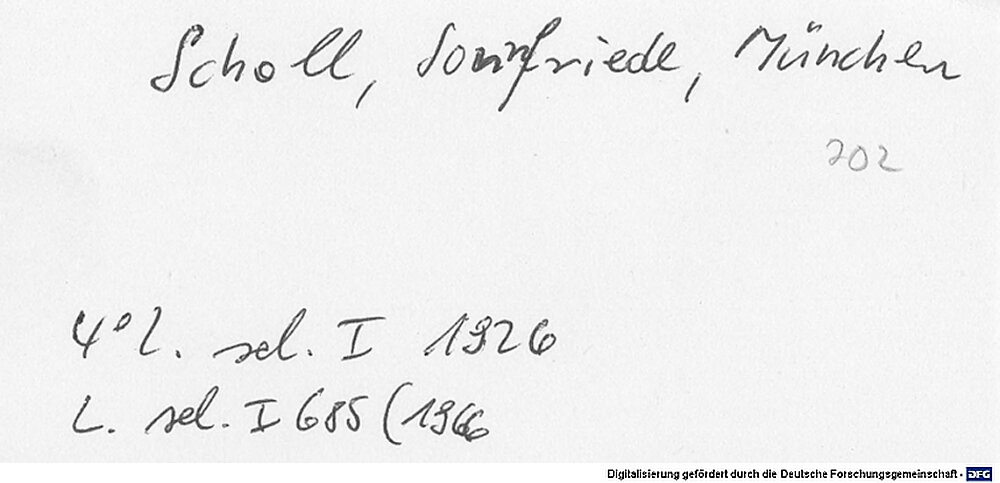 Scholl, Sonnfriede, München
202
4° L. sel. I 1926
L. sel. I 685 (1966
Digitalisierung gefördert durch die Deutsche Forschungsgemeinschaft - DFG